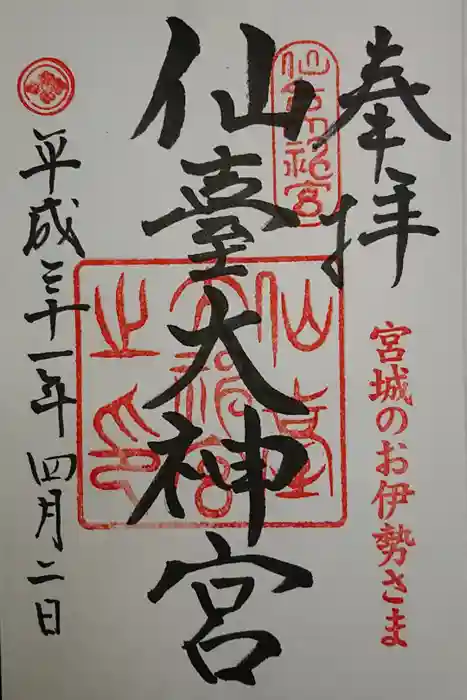 奉拝
宮城のお伊勢さま
仙臺大神宮
仙臺大神宮之印
平成三十一年四月二日